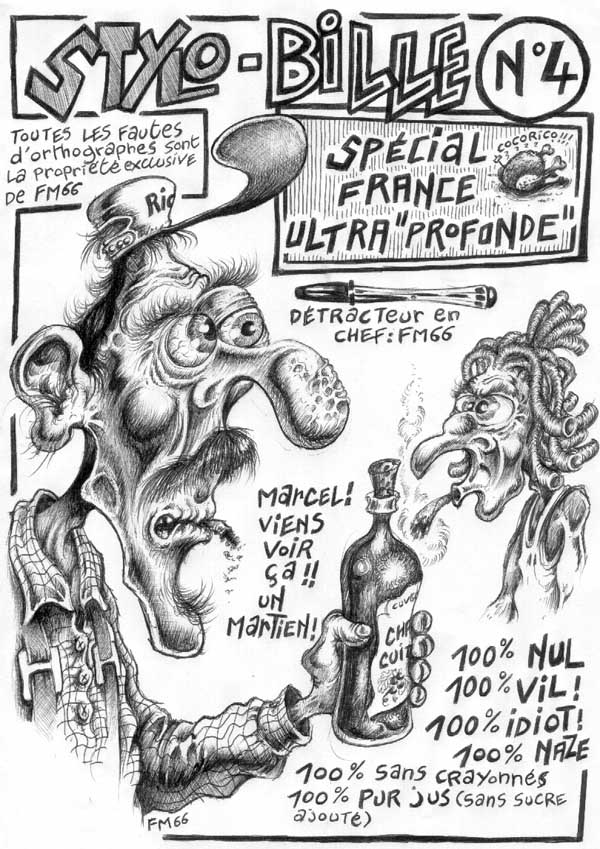 STYLO-BILLE N°4
TOUTES LES FAUTES
D'ORTHOGRAPHES SONT
LA PROPRIÉTÉ EXCLUSIVE
DE FM66
Ric
COCORICO!!!
SPÉCIAL
FRANCE
ULTRA "PROFONDE"
DÉTRACTEUR EN
CHEF: FM66
MARCEL!
VIENS
VOIR
ÇA!!
UN
MARTIEN!
CUVÉ
CHA
CUIT
100% NUL
100% VIL!
100% IDIOT!
100% NAZE
100% SANS CRAYONNÉS
100% PUR JUS (SANS SUCRE
AJOUTÉ)
FM66